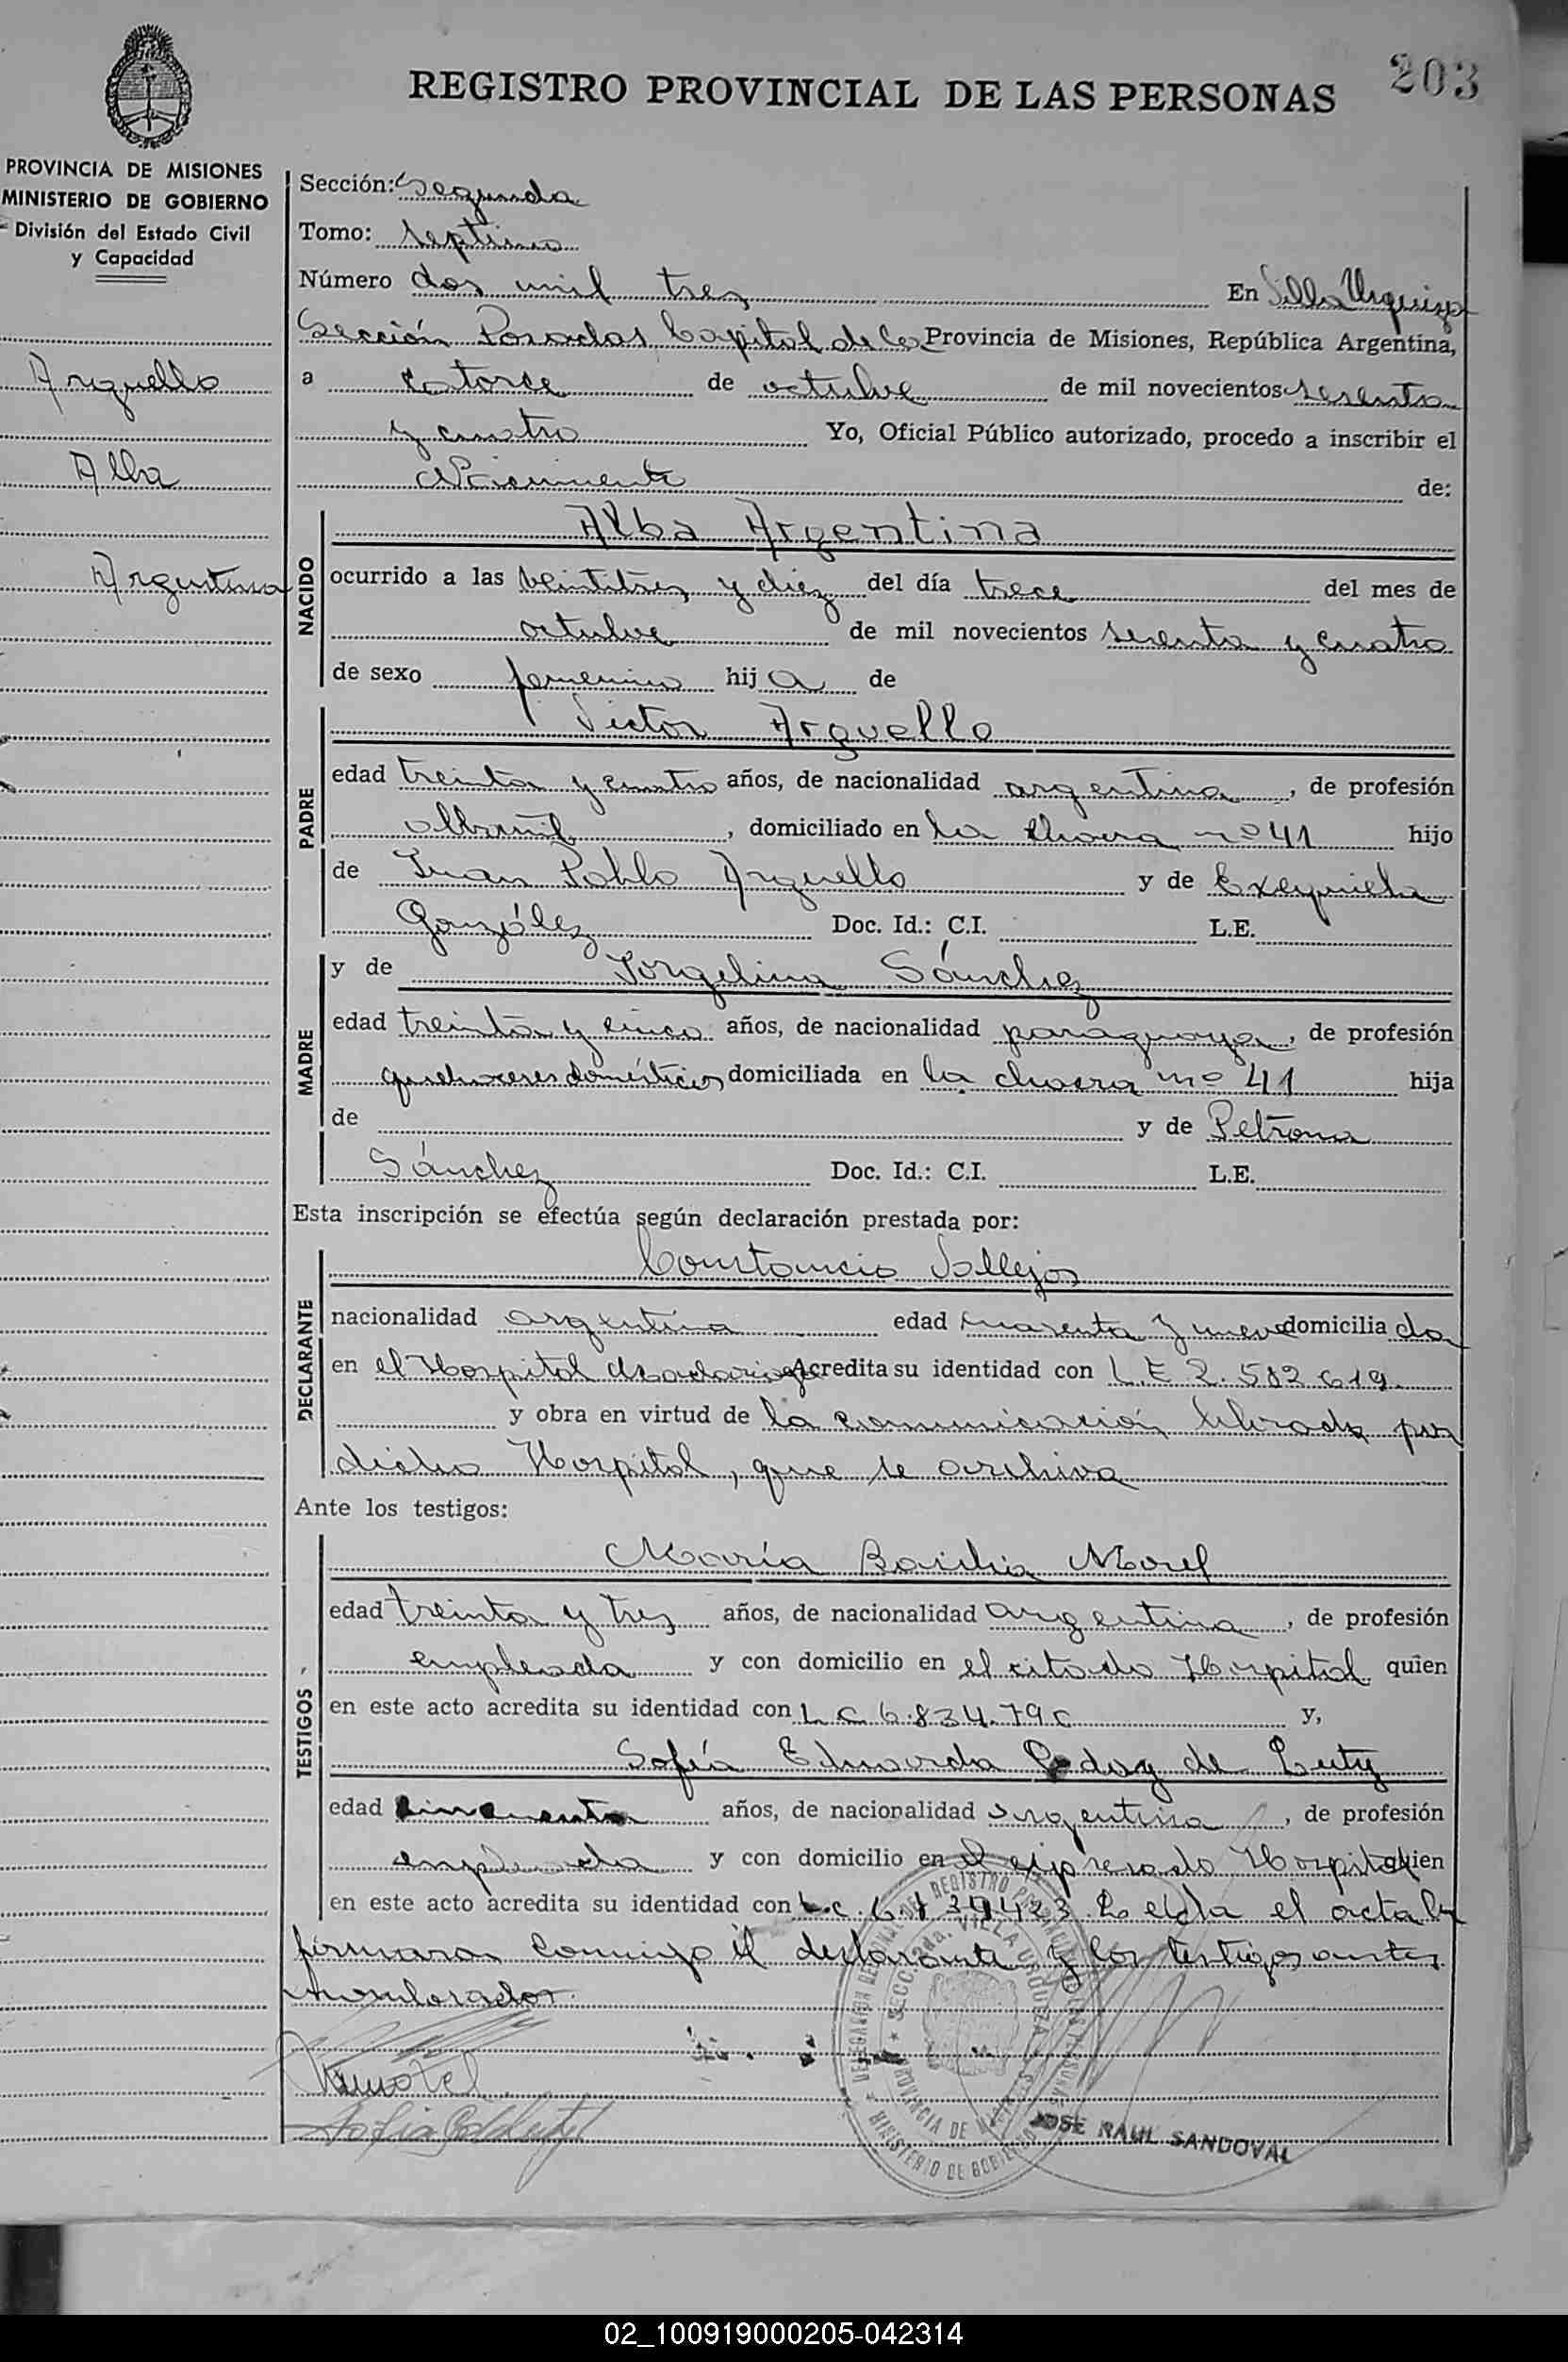 203
REGISTRO PROVINCIAL DE LAS PERSONAS
PROVINCIA DE MISIONES
MINISTERIO DE GOBIERNO
División del Estado Civil
y Capacidad
Arguello
Alba
Argentina
Sección: Segunda
Tomo: septimo
Número dos mil tres En Villa Urquiza
Sección Posadas Capital de la Provincia de Misiones, República Argentina,
a catorce de octubre de mil novecientos sesenta
y cuatro Yo, Oficial Público autorizado, procedo a inscribir el
Nacimiento de:
NACIDO
Alba Argentina
ocurrido a las veintitres y diez del día trece del mes de
octubre de mil novecientos sesenta y cuatro
de sexo femenino hija de
PADRE
Victor Arguello
edad treinta y cuatro años, de nacionalidad argentina, de profesión
albañil, domiciliado en la chacra nº 41 hijo
de Juan Pablo Arguello y de Exequiela
González Doc. Id.: C.I. L.E.
MADRE
y de Jorgelina Sánchez
edad treinta y cinco años, de nacionalidad paraguaya, de profesión
quehaceres domésticos domiciliada en la chacra nº 41 hija
de y de Petrona
Sánchez Doc. Id.: C.I. L.E.
Esta inscripción se efectúa según declaración prestada por:
DECLARANTE
Constancio Vallejos
nacionalidad argentina edad cuarenta y nueve domiciliado
en el Hospital Madariaga Acredita su identidad con L.E 2.582.619
y obra en virtud de la comunicación librada por
dicho Hospital, que se archiva
Ante los testigos:
TESTIGOS
María Morel
edad treinta y tres años, de nacionalidad argentina, de profesión
empleada y con domicilio en el citado Hospital quien
en este acto acredita su identidad con L.C. 6.834.79 y,
Sofía Eduarda de
edad cincuenta años, de nacionalidad argentina, de profesión
empleada y con domicilio en el expresado Hospital quien
en este acto acredita su identidad con L.C. Leída el acta la
firmaron conmigo el declarante y los testigos antes
nombrados.
DELEGACION DEL REGISTRO PROVINCIAL DE LAS PERSONAS
SECC. 2da. VILLA URQUIZA
PROVINCIA DE MISIONES
MINISTERIO DE GOBIERNO
JOSE RAUL SANDOVAL
02_100919000205-042314